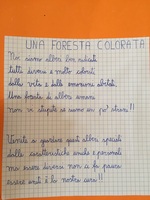 UNA FORESTA COLORATA
Noi siamo alberi ben radicati
tutti diversi e molto colorati
dalla vita e dalle emozioni abitati.
Una foresta di alberi umani
non vi stupite se siamo un po' strani!!
Venite a guardare questi alberi speciali
dalle caratteristiche uniche e personali
ma essere diversi non ci fa paura
essere uniti è la nostra cura!!